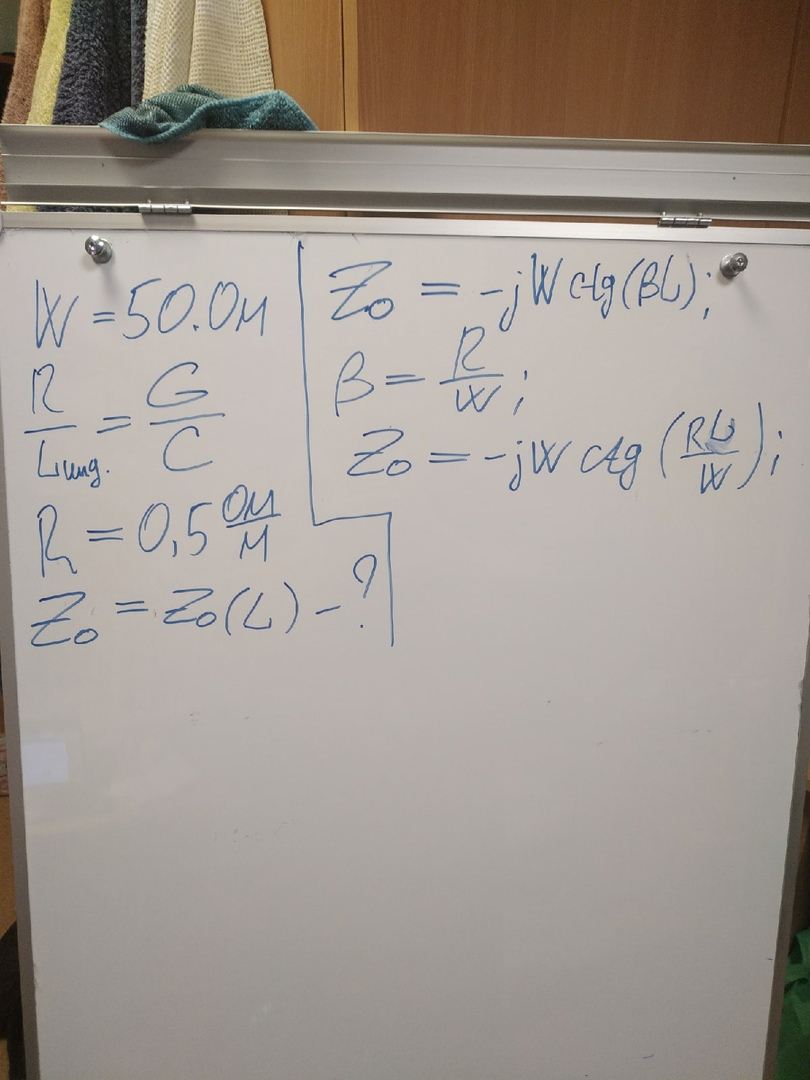 W = 50.Ом
R/Lинд. = G/C
R = 0,5 Ом/м
Z₀ = Z₀(L) - ?
Z₀ = -jW ctg(βL);
β = R/W;
Z₀ = -jW ctg(RL/W);